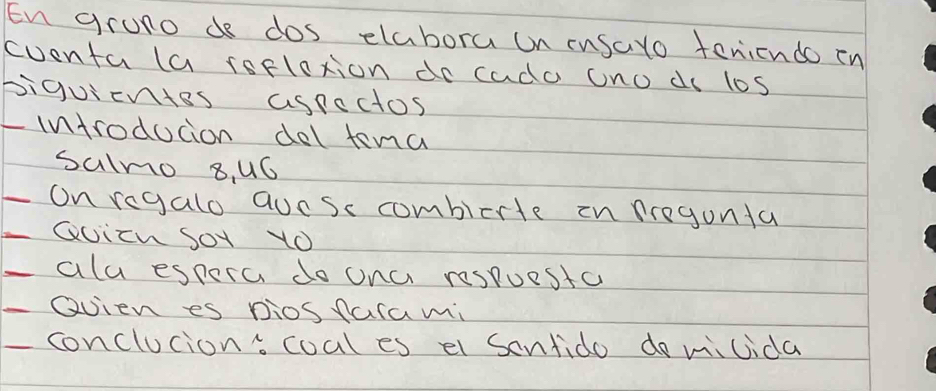 En grupo de dos elabora un ensayo teniendo en
cuenta la reflexion de cada uno de los
siguientes aspectos
- introducion del tema
Salmo 8,4-6
- un regalo que se combierte en pregunta
- Quien soy yo
- ala espera de una respuesta
- Quien es Dios para mi
- conclucion: coal es el sentido de mi vida